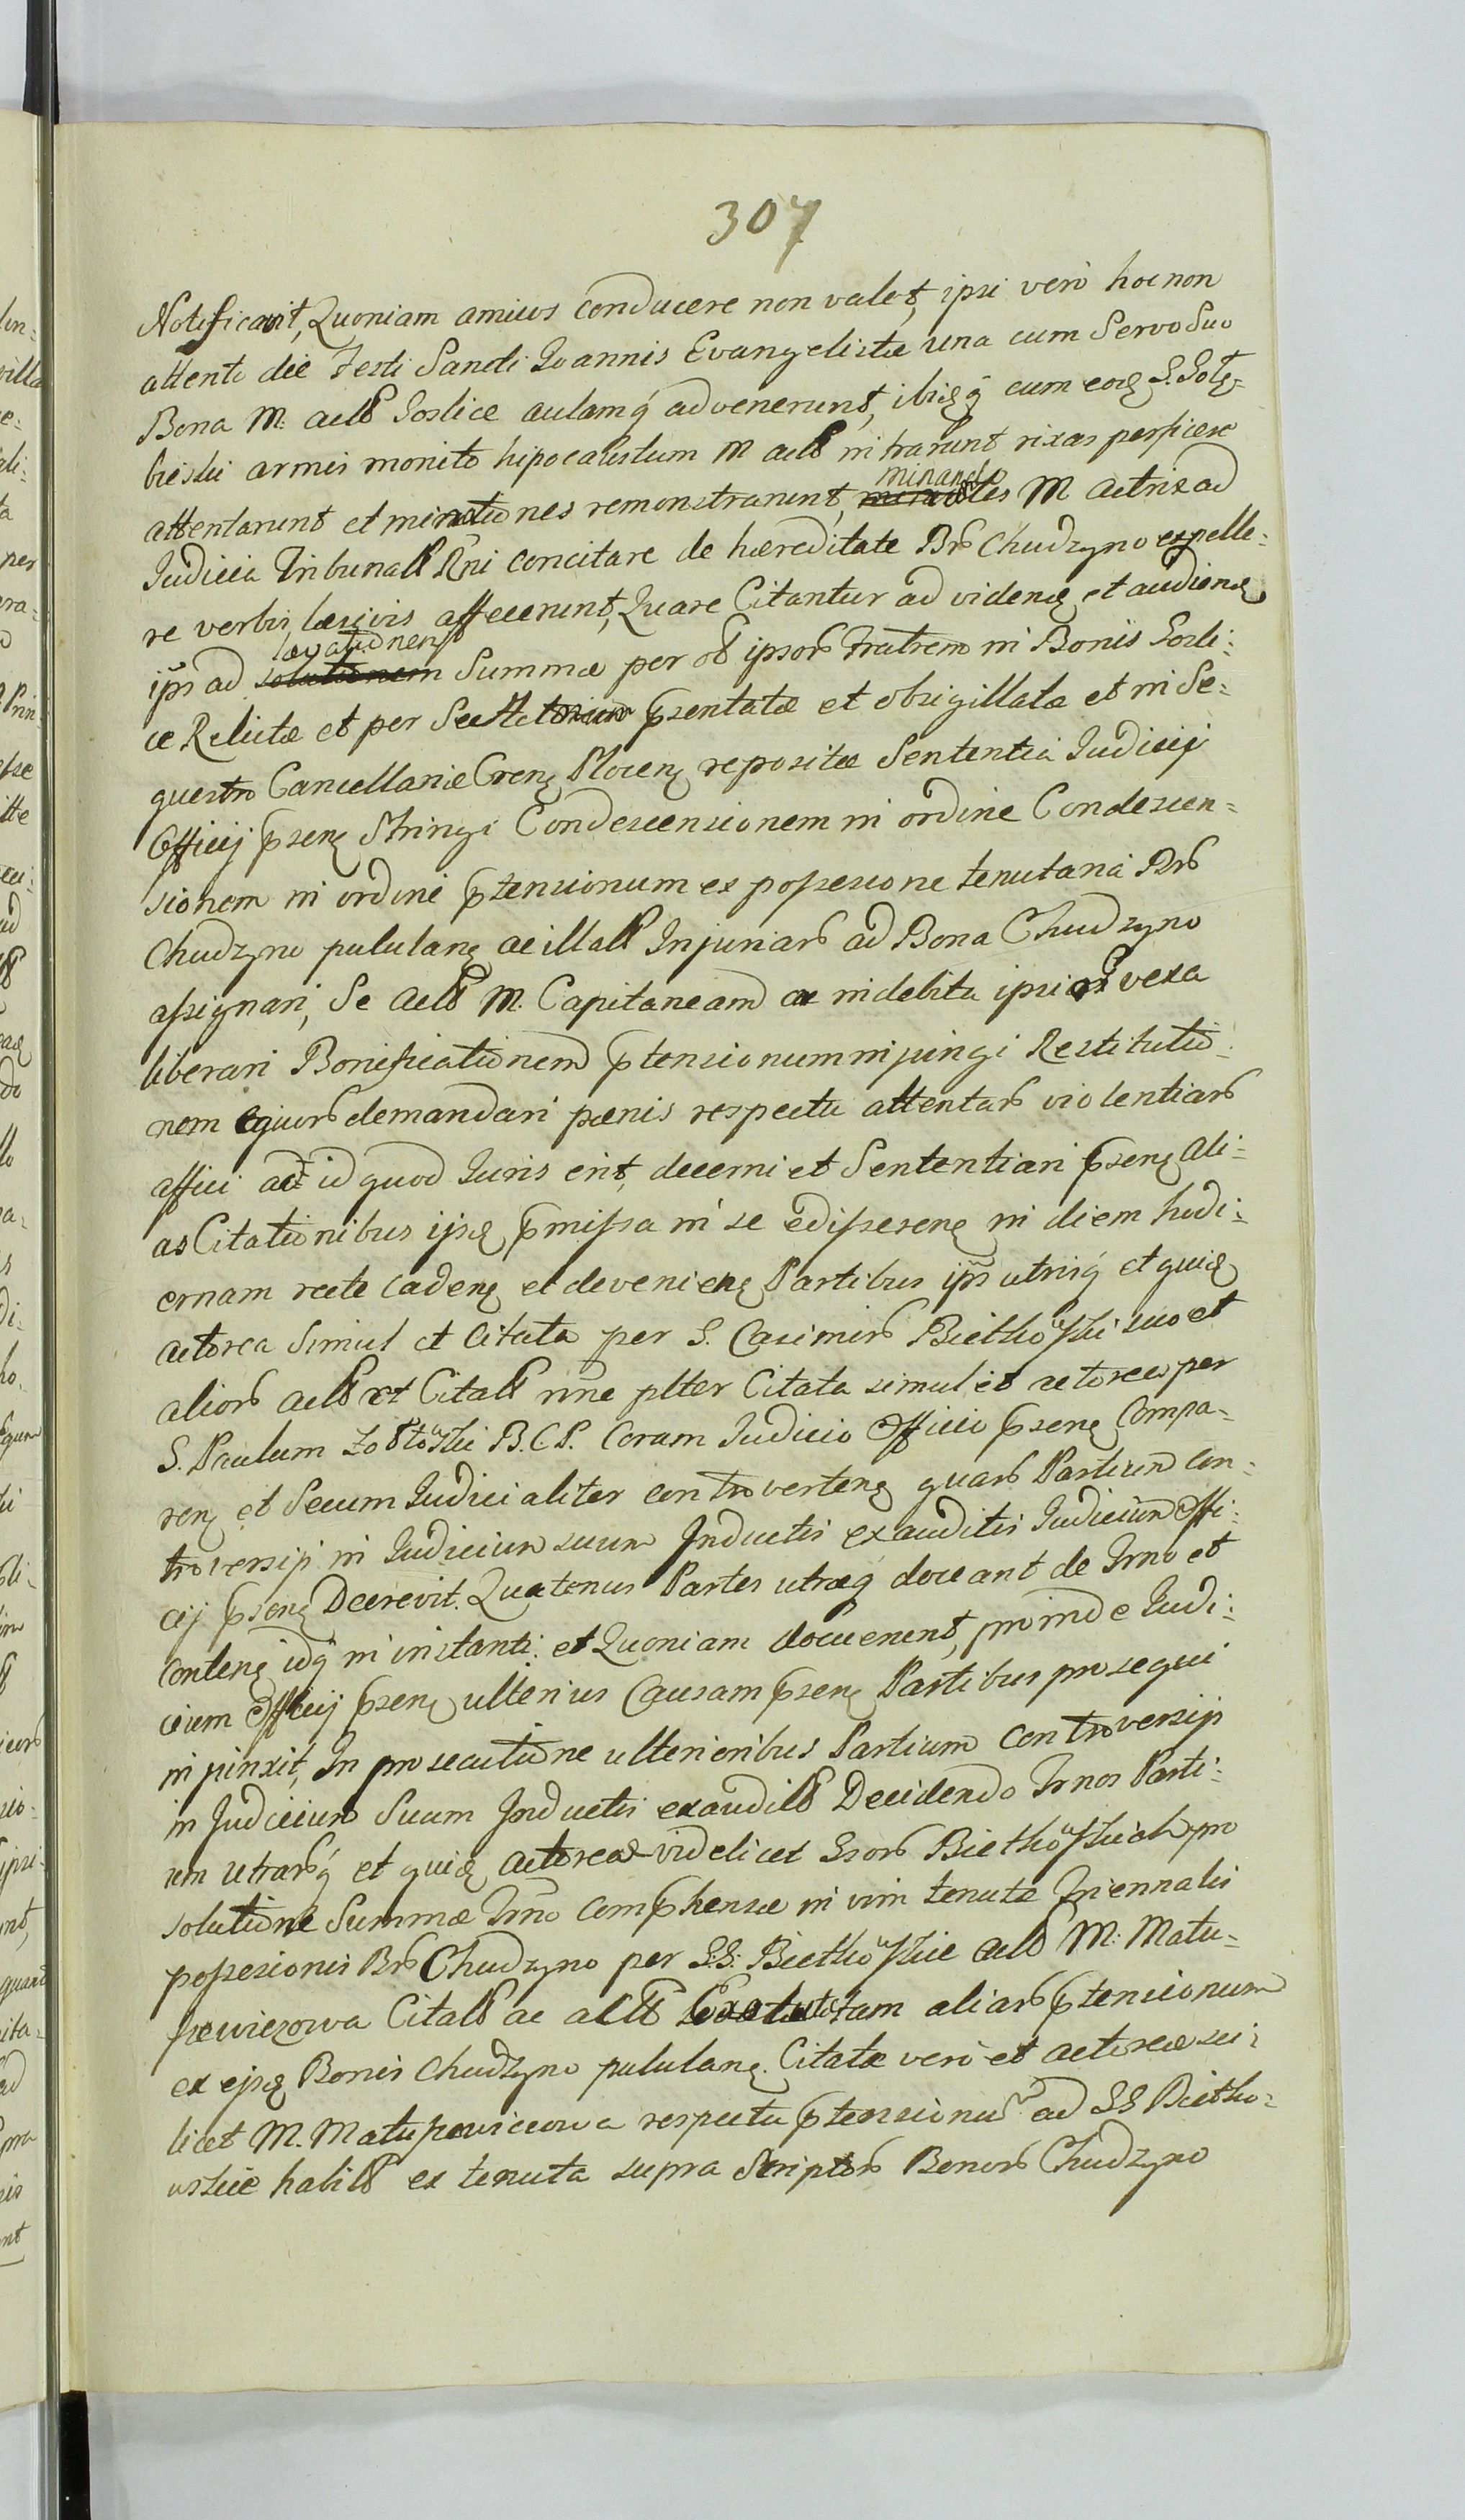 307
Notificavit, Quoniam amivos conducere non valet, ipsi verò hoc non
attento die Festi Sancti Joannis Evangelistæ una cum Servo Suo
Bona M: actt Goslice aulamq́ advenerunt, ibiq́ cum eoꝗ G. Gołę-
bieski armis monito hipocaustum M actt intrarunt rixas perficere
attentarunt et minationes remonstrarunt, minando M Actrix ad
Judicia Tribunall Rñi concitare de hæreditate Brō Chudzyno expelle:
re verbis læsivis affecerunt, Quare Citantur ad videnꝗ et audienꝗ
ip̃s ad levationem Summæ per ob ipsorō Fratrem in Bonis Gosli:
ce Relictæ et per p̃sentatæ et obsigillatæ et in Se:
questro Cancellariæ Crenꝗ Plocenꝗ repositæ Sententia Judicij
Officij p̃senꝗ Stringi Condescensionem in ordine Condescen-
sionem in ordine p̃tensionum ex possessione tenutaria Brō
Chudzyno pululanꝗ ac illatt Injuriarō ad Bona Chudzyno
assignari, Se actt M. Capitaneam ac indebita ipsiorō vexa
liberari Bonificationem p̃tensionum injungi Restitutio:
nem equorō demandari pœnis respectu attentarō violentiarō
affici ad id quod Juris erit, decerni et Sententiari p̃senꝗ ali:
as Citationibus ijsꝗ p̃missa in se edisserenꝗ in diem hodi:
ernam recte cadenꝗ et devenienꝗ Partibus ip̃s utrisq́ et quiꝗ
actorea Simul et Citata per G. Casimirō Bietkowski suo et
aliorō actt et Citatt nñe plter Citata simul et actorea per
G. Paulum Zołtowski B.C.P. Coram Judicio Officio p̃senꝗ Compa-
renꝗ et Secum Judicialiter controvertenꝗ quarō Partium con:
troversijs in Judicium suum Inductis exauditis Judicium Offi:
cij p̃senꝗ Decrevit. Quatenus Partes utræq́ doceant de Trno et
contenꝗ idq́ in instanti: et Quoniam docuerunt, proinde Judi:
cium Officij p̃senꝗ ulterius Causam p̃senꝗ Partibus prosequi
injunxit, In prosecutione ulterioribus Partium controversijs
in Judicium Suum Inductis exauditt Decidendo Trnos Parti:
um utrarōq́ et quiꝗ actoreæ videlicet Gsorō Bietkowskich pro
solutione Summæ Trño comp̃hensæ in vim tenutæ Triennalis
possessionis Brō Chudzyno per G.G: Bietkowskie actt M: Matu-
szewiczowa Citatt ac actt aliarō p̃tensionum
ex ejsꝗ Bonis Chudzyno pululanꝗ. Citatæ verò et actoreæ sci:
licet M. Matuszewiczowa respectu p̃tensionũ ad GG Bietko:
wskie habitt ex tenuta supra Scriptorō Bonorō Chudzyno